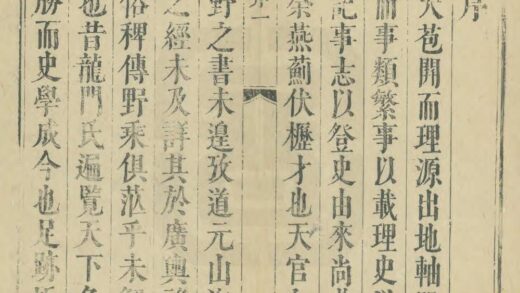 序
苞開而理源出地軸
而事類繁事以載理史
記事志以登史由來尚
余燕薊伏櫪才也天官
序一
野之書未遑攷道元山海
之經未及詳其於廣輿
俗稗傳野乘俱茫乎未
也昔龍門氏遍覽天下名
勝而史學成今也足跡